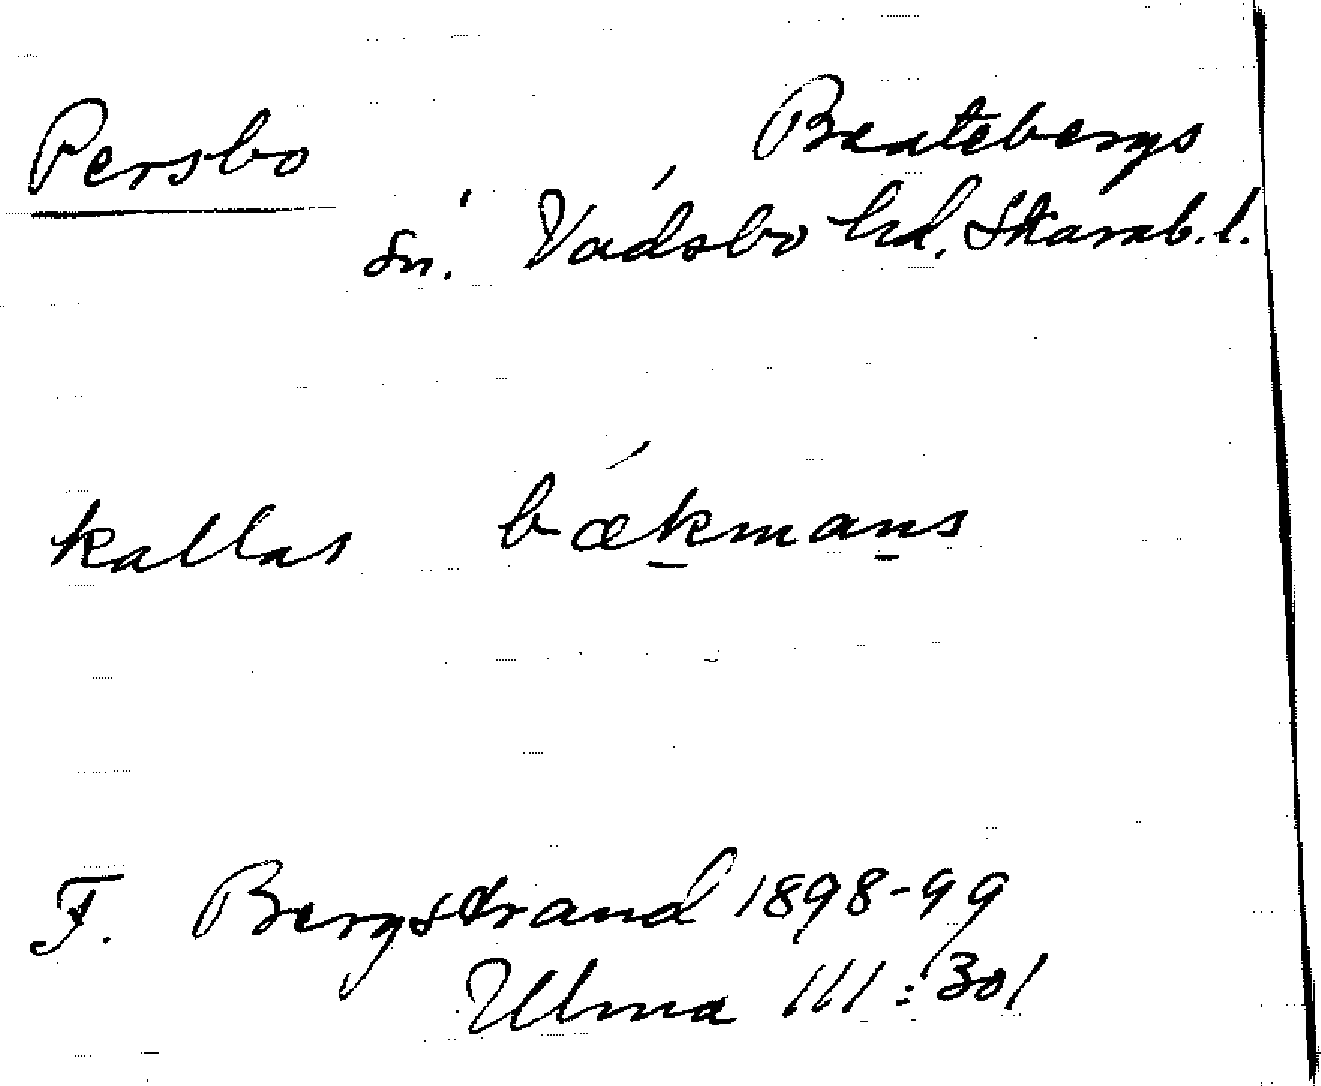 Persbo Beatebergs
sn. Vadsbo hd. Skarab. l.
kallas bækmans
F. Bergstrand 1898-99
Ulma 111:301